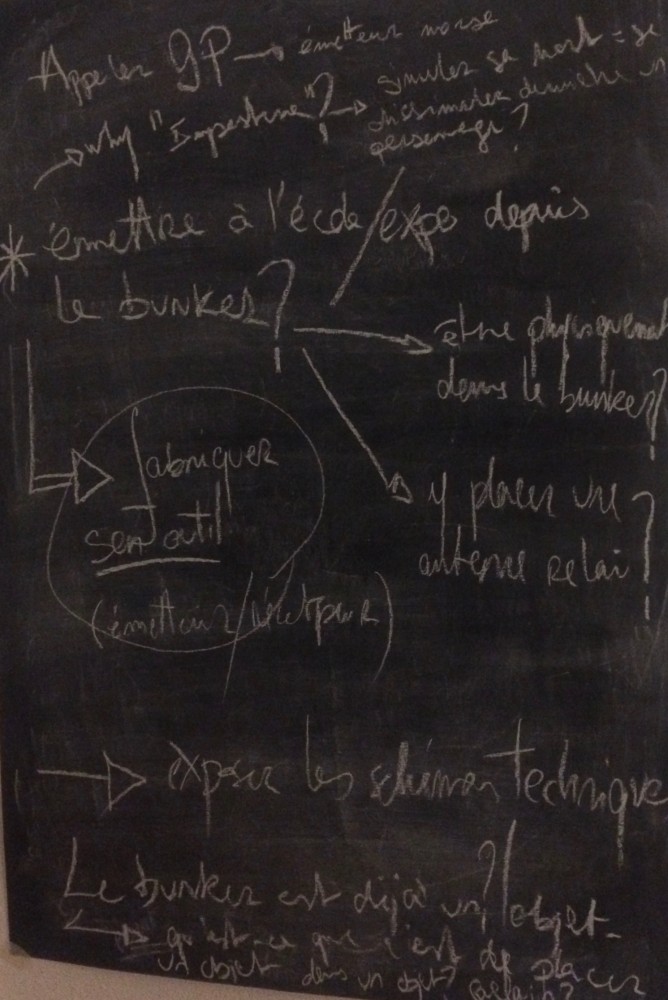 Appeler GP → émetteur morse
→ why "Imposture"? → simuler sa mort = se
dissimuler derrière un
personnage?
* émettre à l'école/expo depuis
le bunker?
→ être physiquement
dans le bunker?
⇒ fabriquer
son outil
(émetteur/récepteur)
→ y placer une
antenne relai?
→ exposer les schémas technique
Le bunker est déjà un objet
→ qu'est-ce que c'est de placer
un objet dans un objet?